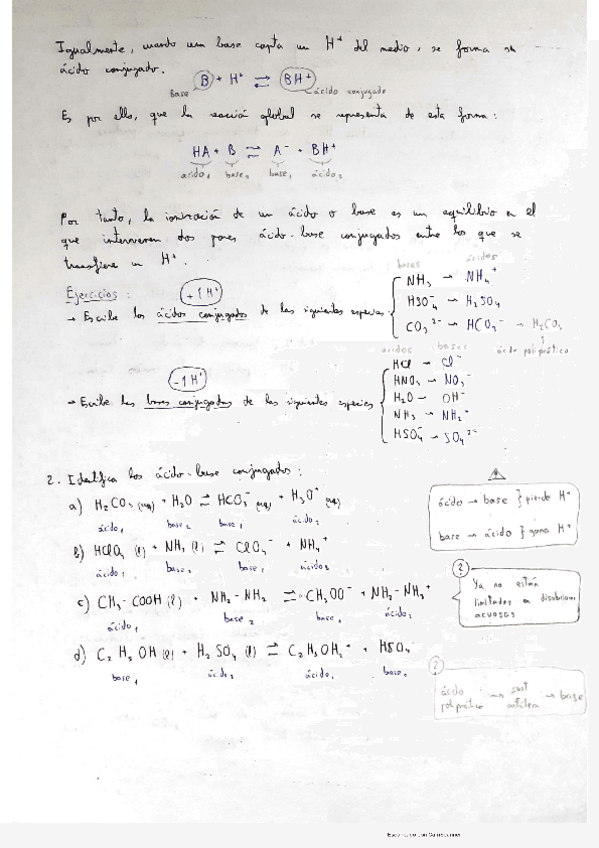 Igualmente, cuando una base capta un H⁺ del medio, se forma su
ácido conjugado.
B + H⁺ ⇌ BH⁺
base ácido conjugado
Es por ello, que la reacción global se representa de esta forma:
HA + B ⇌ A⁻ + BH⁺
ácido₁ base₂ base₁ ácido₂
Por tanto, la ionización de un ácido o base es un equilibrio en el
que intervienen dos pares ácido-base conjugados entre los que se
transfiere un H⁺.
Ejercicios:
+1H⁺
→ Escribe los ácidos conjugados de las siguientes especies
bases ácidos
NH₃ → NH₄⁺
HSO₄⁻ → H₂SO₄
CO₃²⁻ → HCO₃⁻ → H₂CO₃
ácido poliprótico
-1H⁺
→ Escribe las bases conjugadas de las siguientes especies
ácidos bases
HCl → Cl⁻
HNO₃ → NO₃⁻
H₂O → OH⁻
NH₃ → NH₂⁻
HSO₄⁻ → SO₄²⁻
2. Identifica los ácido-base conjugados:
a) H₂CO₃ (aq) + H₂O ⇌ HCO₃⁻ (aq) + H₃O⁺ (aq)
ácido₁ base₂ base₁ ácido₂
b) HClO₄ (l) + NH₃ (l) ⇌ ClO₄⁻ + NH₄⁺
ácido₁ base₂ base₁ ácido₂
c) CH₃-COOH (l) + NH₂-NH₂ ⇌ CH₃OO⁻ + NH₂-NH₃⁺
ácido₁ base₂ base₁ ácido₂
d) C₂H₅OH (l) + H₂SO₄ (l) ⇌ C₂H₅OH₂⁺ + HSO₄⁻
base₁ ácido₂ ácido₁ base₂
ácido → base } pierde H⁺
base → ácido } gana H⁺
?
Ya no están
limitados a disoluciones
acuosas
?
ácido poliprótico → sust anfótera → base
Escaneado con CamScanner